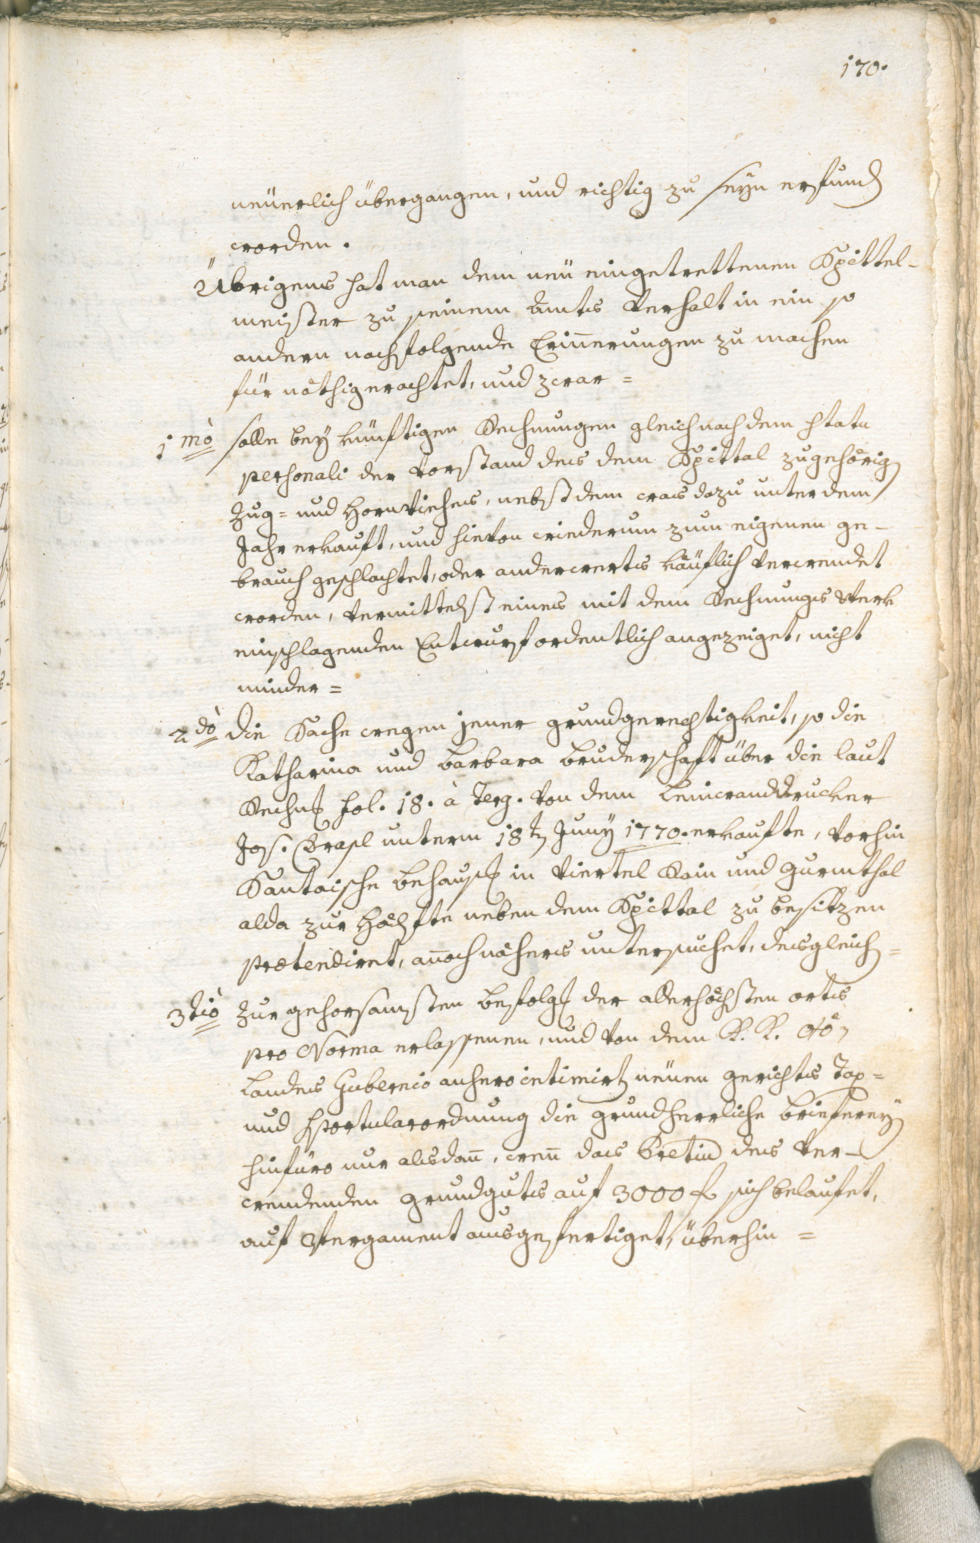 170.
neüerlich übergangen, und richtig zu seÿn erfund
worden.
Übrigens hat man dem neü eingetrettenen Spittel-
meister zu seinem Amts Verhalt in ein so
andern nachfolgende Erinnerungen zu machen
für nöthig erachtet, und zwar =
1mò solle beÿ künftigen Rechnungen gleich nach dem statu
personali der Vorstand des dem Spittal zugehörig
Zug= und Hornviehes, nebst dem was dazu unter dem
Jahr erkauft, und hievon wiederum zum eigenen ge-
brauch geschlachtet, oder anderwerts käuflich verwendet
worden, vermittelst eines mit dem Rechnungs Werk
einschlagenden Entwurf ordentlich angezeiget, nicht
minder =
2dò die Sache wegen jener grundgerechtigkeit, so die
Katharina und Barbara Bruderschaft über die laut
Rechng fol. 18. à Terg. von dem Leinwanddrucker
Jos. Grasl unterm 18t Junÿ 1770. erkaufte, vorhin
Santaische behausg in Viertel Rain und Gurmthal
alda zur Hölfte neben dem Spittal zu besitzen
prætendiret, annoch näher untersuchet, desgleich =
3tiò zur gehorsamsten befolgg der allerhöchsten orts
pro Norma erlassenen, und von dem K. K. OÖ
Landes Gubernio anhero intimirt neüen gerichts Tax=
und Sportularordnung die grundherrliche briefereÿ
hinfüro nur alsdann, wenn das Pretiu des ver-
wendenden grundguts auf 3000 f sich belaufet,
auf Pergament ausgefertiget, überhin =